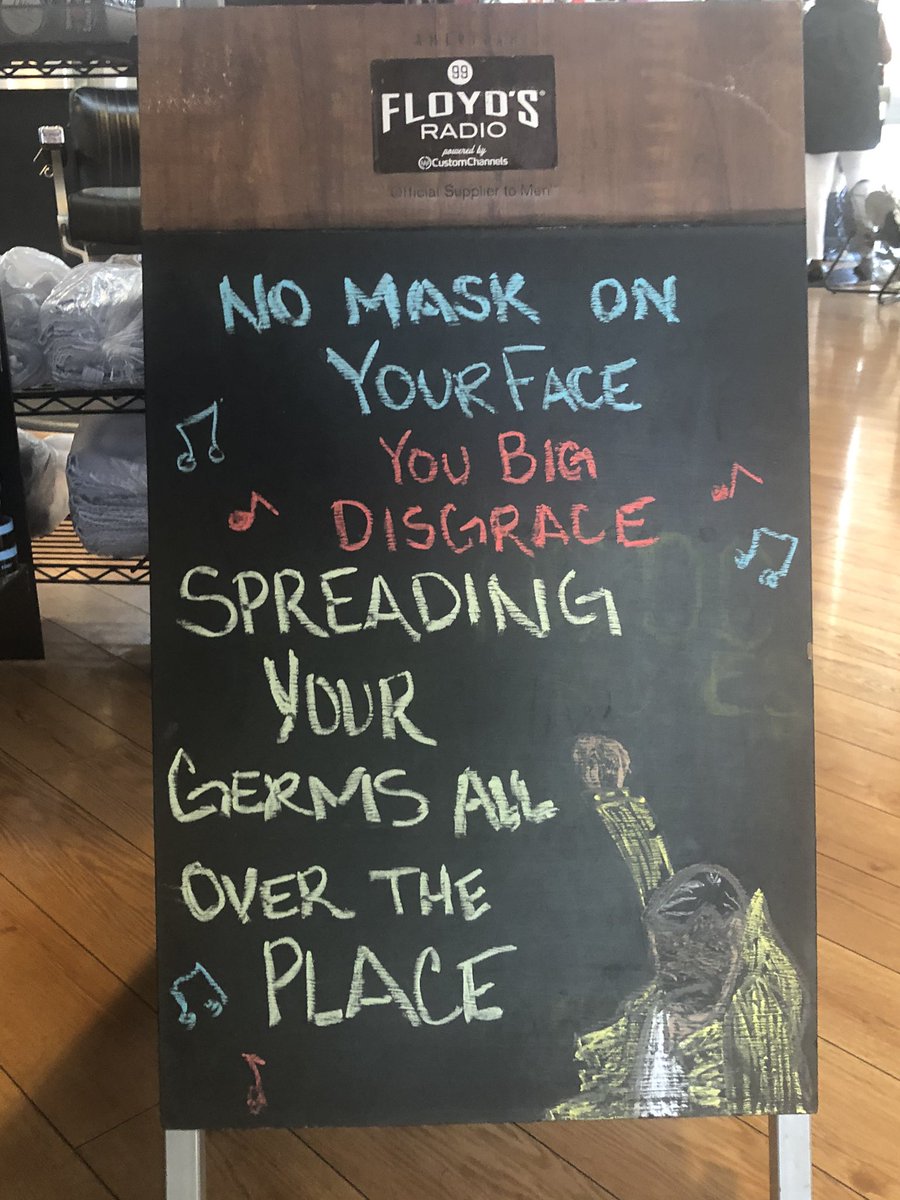 AMERICAN
99
FLOYD'S
RADIO
powered by
CustomChannels
Official Supplier to Men
NO MASK ON
YOUR FACE
YOU BIG
DISGRACE
SPREADING
YOUR
GERMS ALL
OVER THE
PLACE